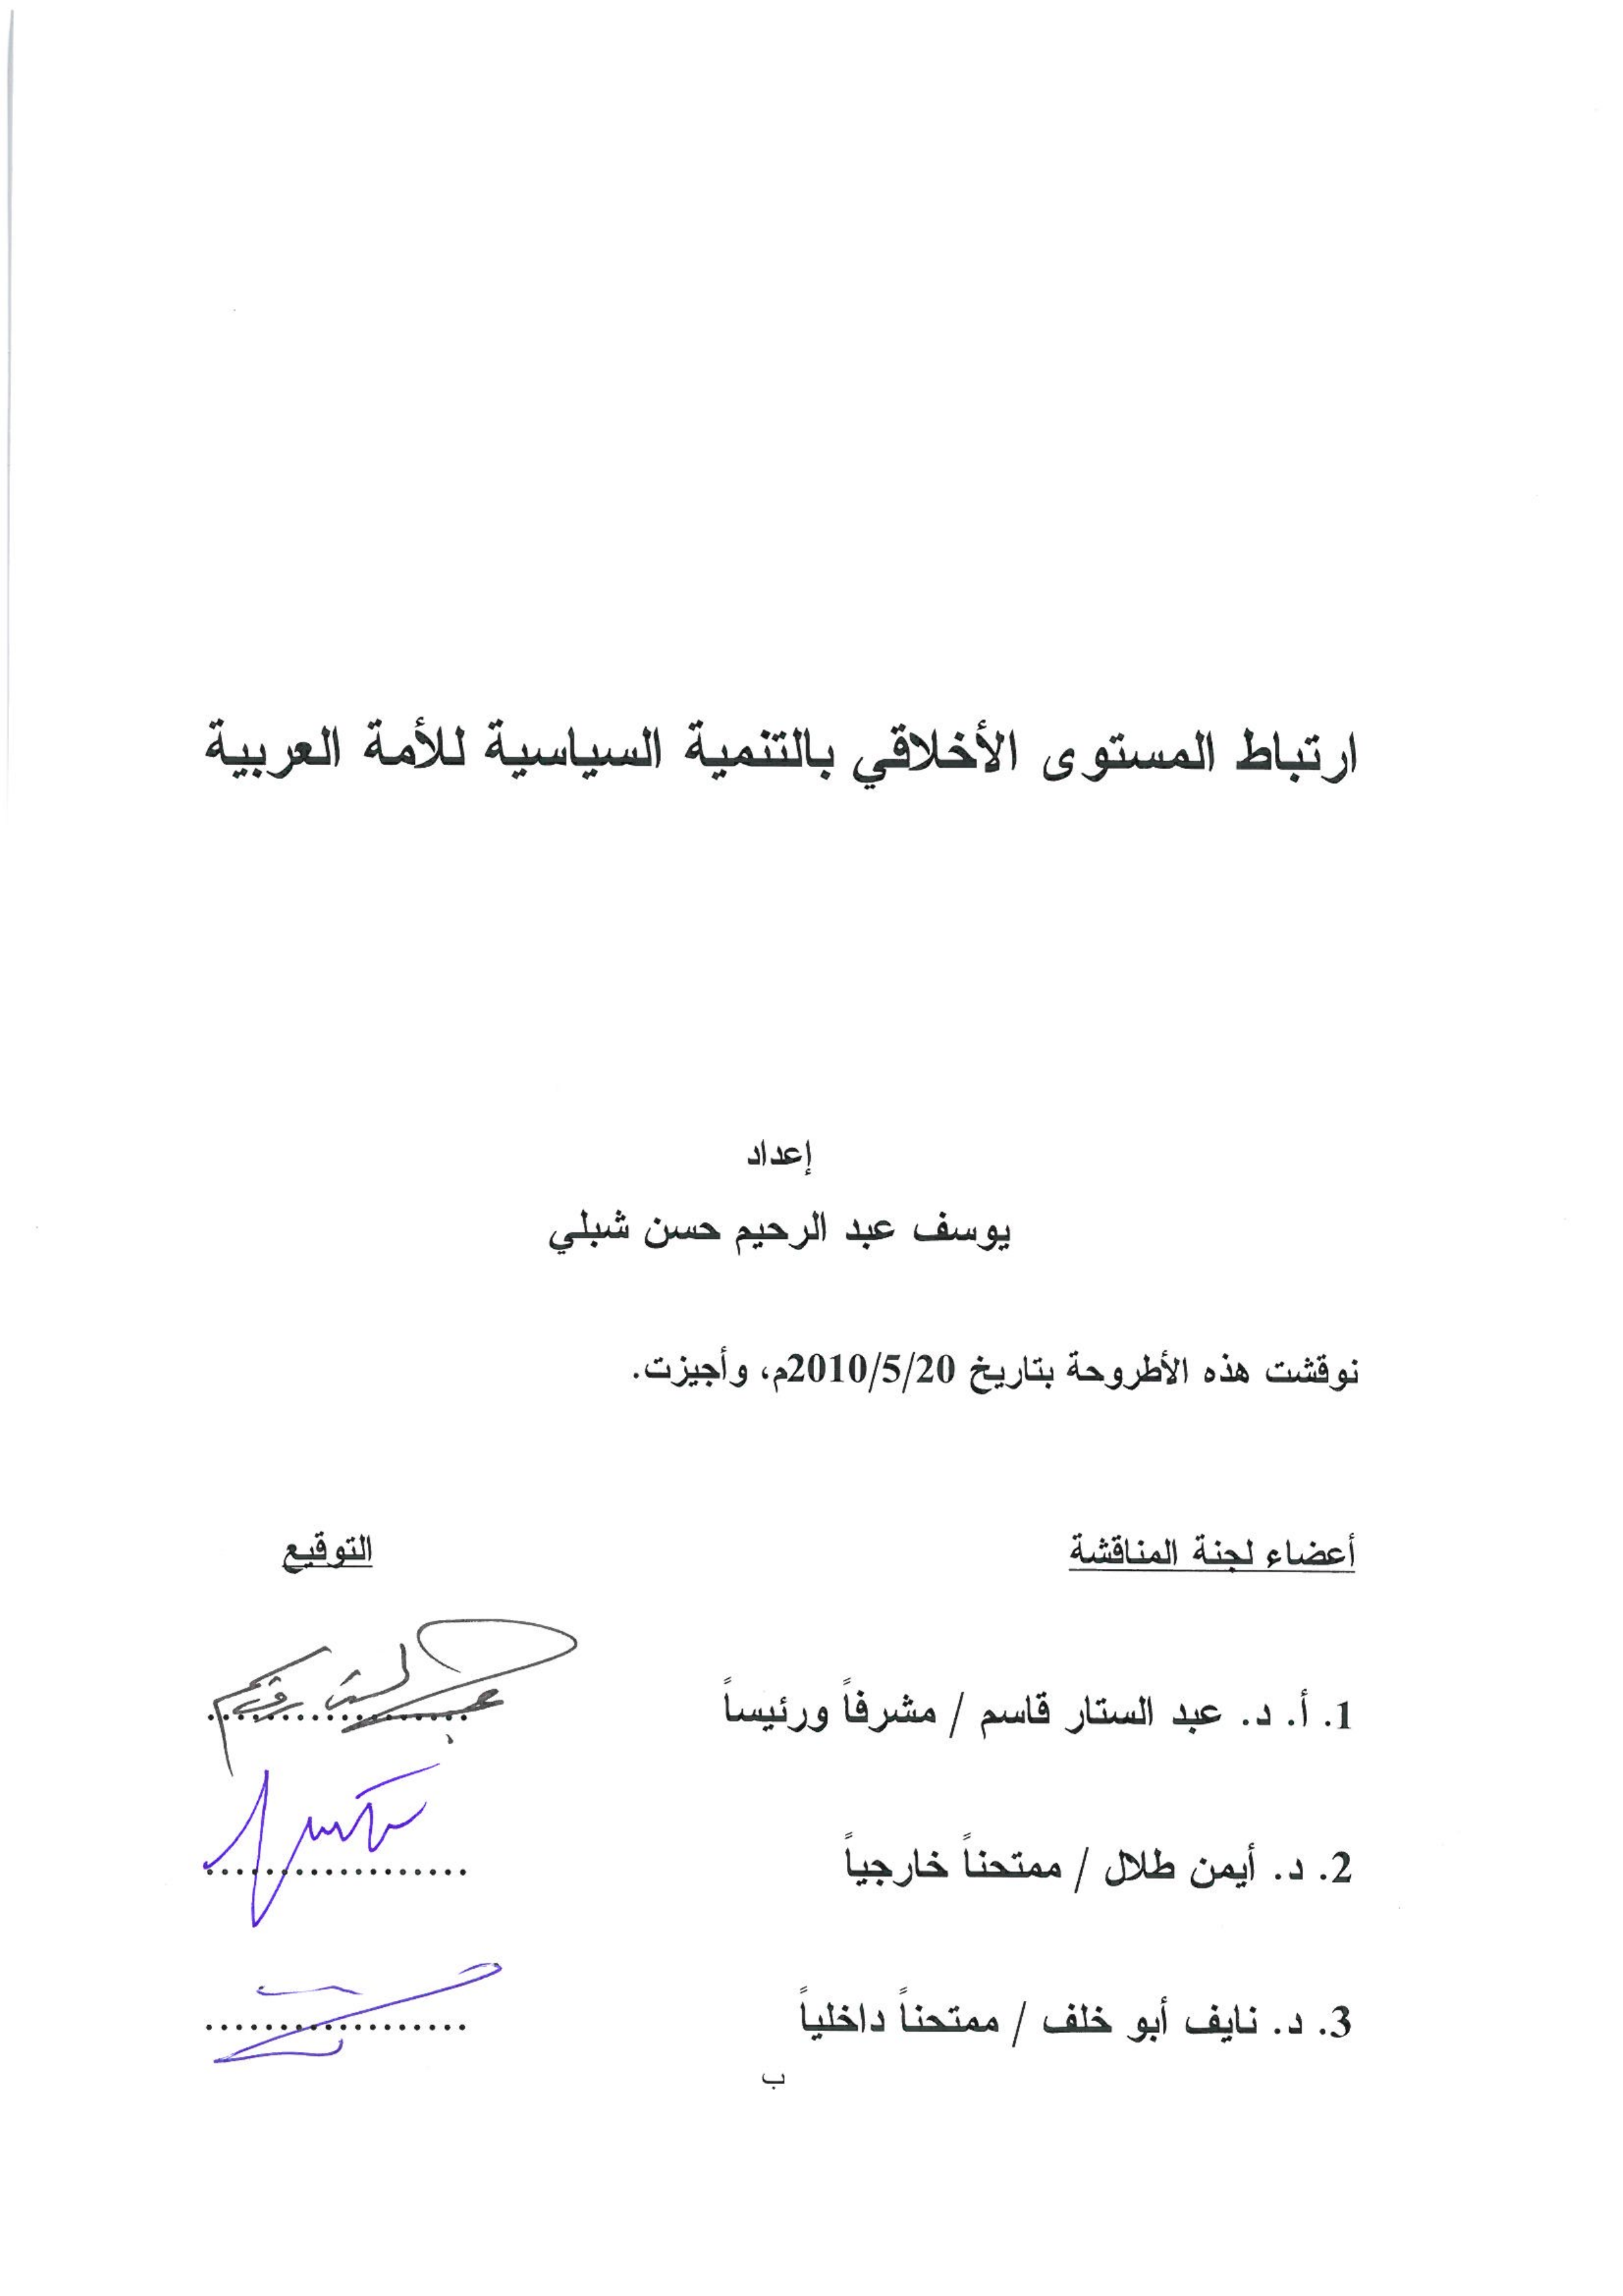 ارتباط المستوى الأخلاقي بالتنمية السياسية للأمة العربية
إعداد
يوسف عبد الرحيم حسن شبلي
نوقشت هذه الأطروحة بتاريخ 2010/5/20م، وأجيزت.
أعضاء لجنة المناقشة التوقيع
1. أ. د. عبد الستار قاسم / مشرفاً ورئيساً ..................
2. د. أيمن طلال / ممتحناً خارجياً ..................
3. د. نايف أبو خلف / ممتحناً داخلياً ..................
ب